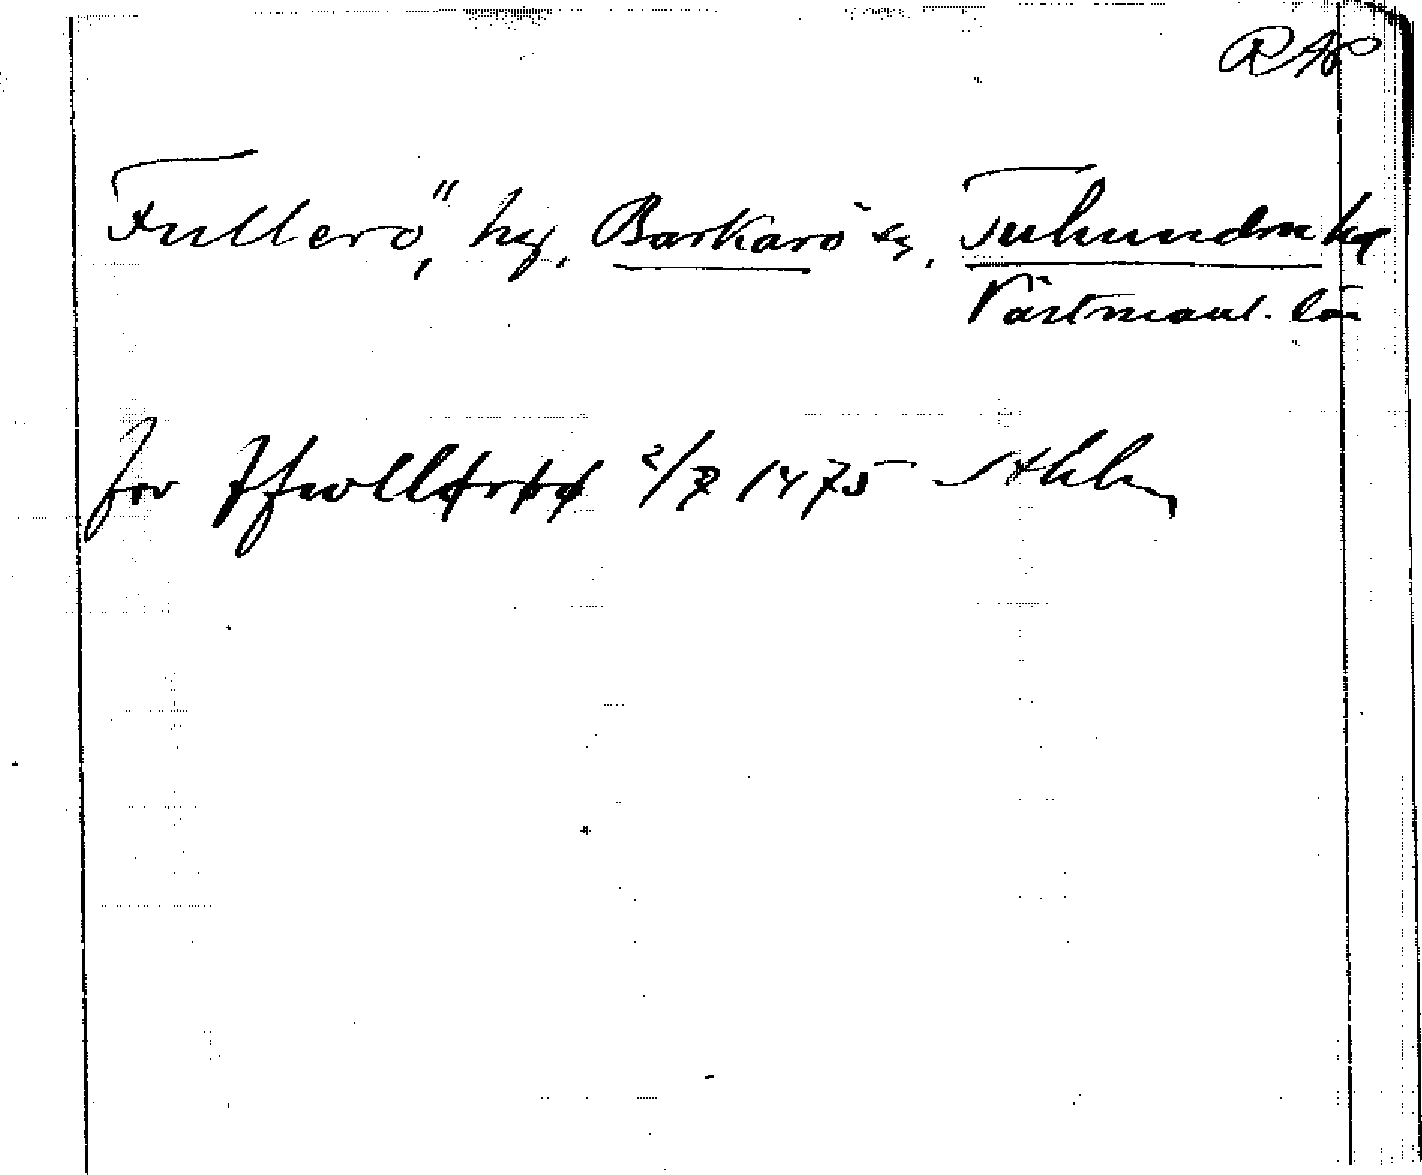 RAP
Fullerö, hg, Barkarö sn, Tuhundra hd
Västmanl. län
for Ffwllørøø 2/7 1475 Sthlm